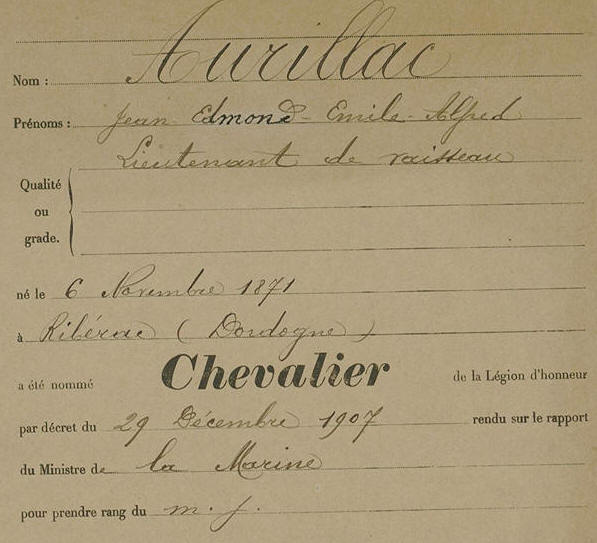 Nom : Aurillac
Prénoms : Jean - Edmond - Emile - Alfred
Lieutenant de vaisseau
Qualité
ou
grade.
né le 6 Novembre 1871
à Ribérac ( Dordogne )
a été nommé Chevalier de la Légion d'honneur
par décret du 29 Décembre 1907 rendu sur le rapport
du Ministre de la Marine
pour prendre rang du m. j.